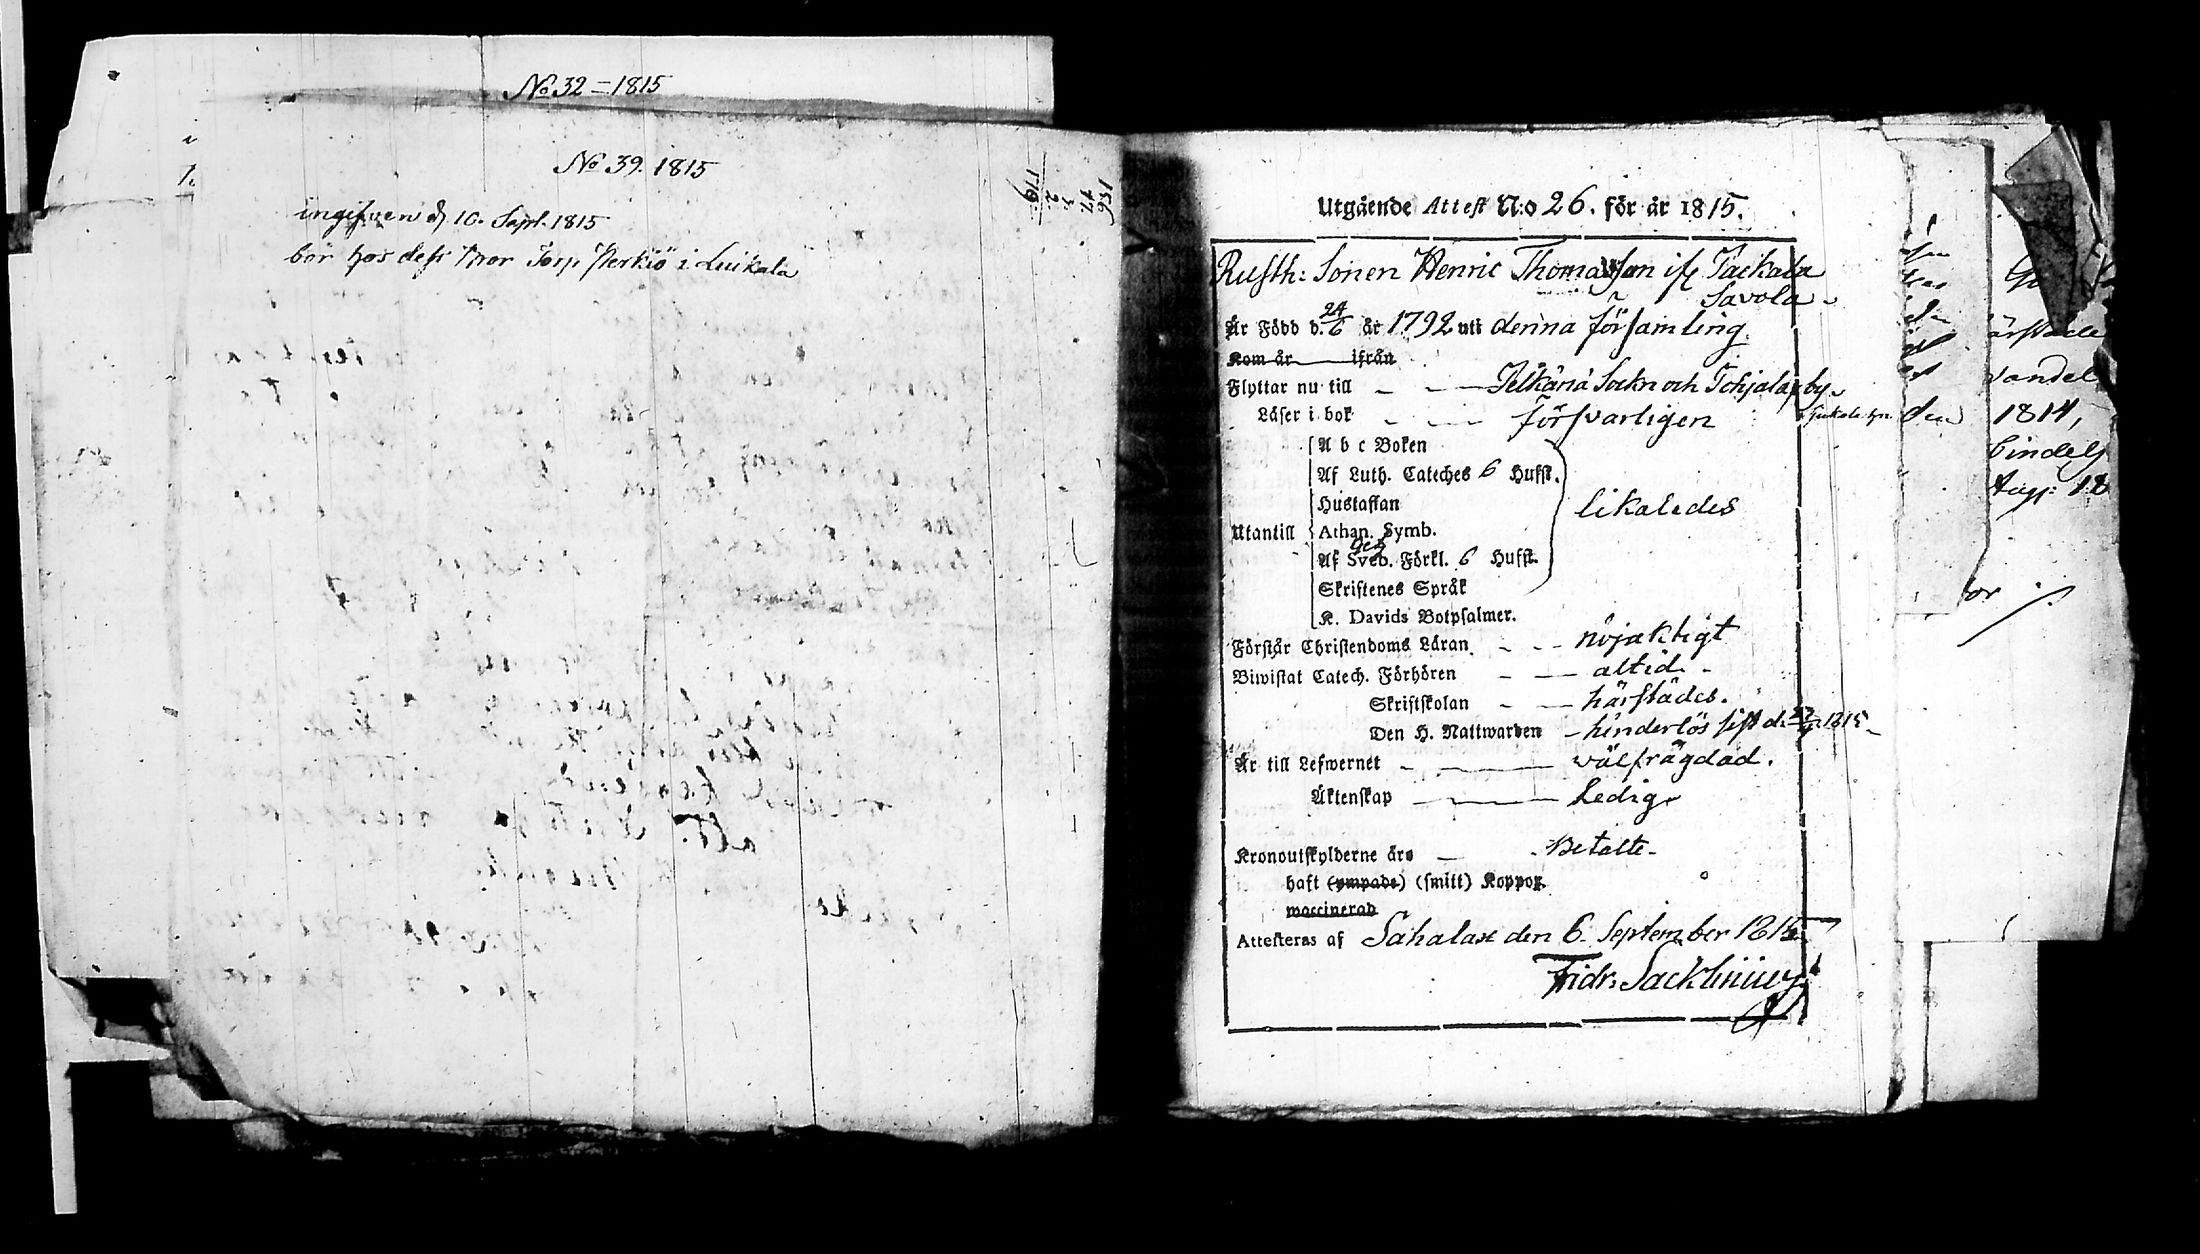 No 32 = 1815
No 39. 1815
ingifven d 10. Sept. 1815
bor hos dess Bror Torp Perkiö i Luikala
156
47
3
2
179
Utgående Attest N:o 26. för år 1815.
Rusth: Sonen Henric Thomasson if. Tackala
Savola
Är Född d. 24/6 år 1792 uti denna församling.
Kom år ifrån
Flyttar nu till Pelkäna Sockn och Tohjala by.
Läser i bok försvarligen
A b c Boken
Af Luth. Cateches 6 Hufst.
Hustaflan
likaledes
Utantill Athan. Symb.
Af Sveb. Förkl. 6 Hufst.
Skriftenes Språk
K. Davids Botpsalmer.
Förstår Christendoms Läran nöjaktigt
Biwistat Catech. Förhören altid
Skriftskolan härstädes.
Den H. Nattwarden hinderlös sist d. 1815
Är till Lefwernet välfrägdad.
Äktenskap Ledig
Kronoutskylderne äro Betalte
haft (ympade) (smitt) Koppor.
waccinerad
Attesteras af Sahalax den 6. September 1815
Fridr. Sacklinius
den
1814,
or